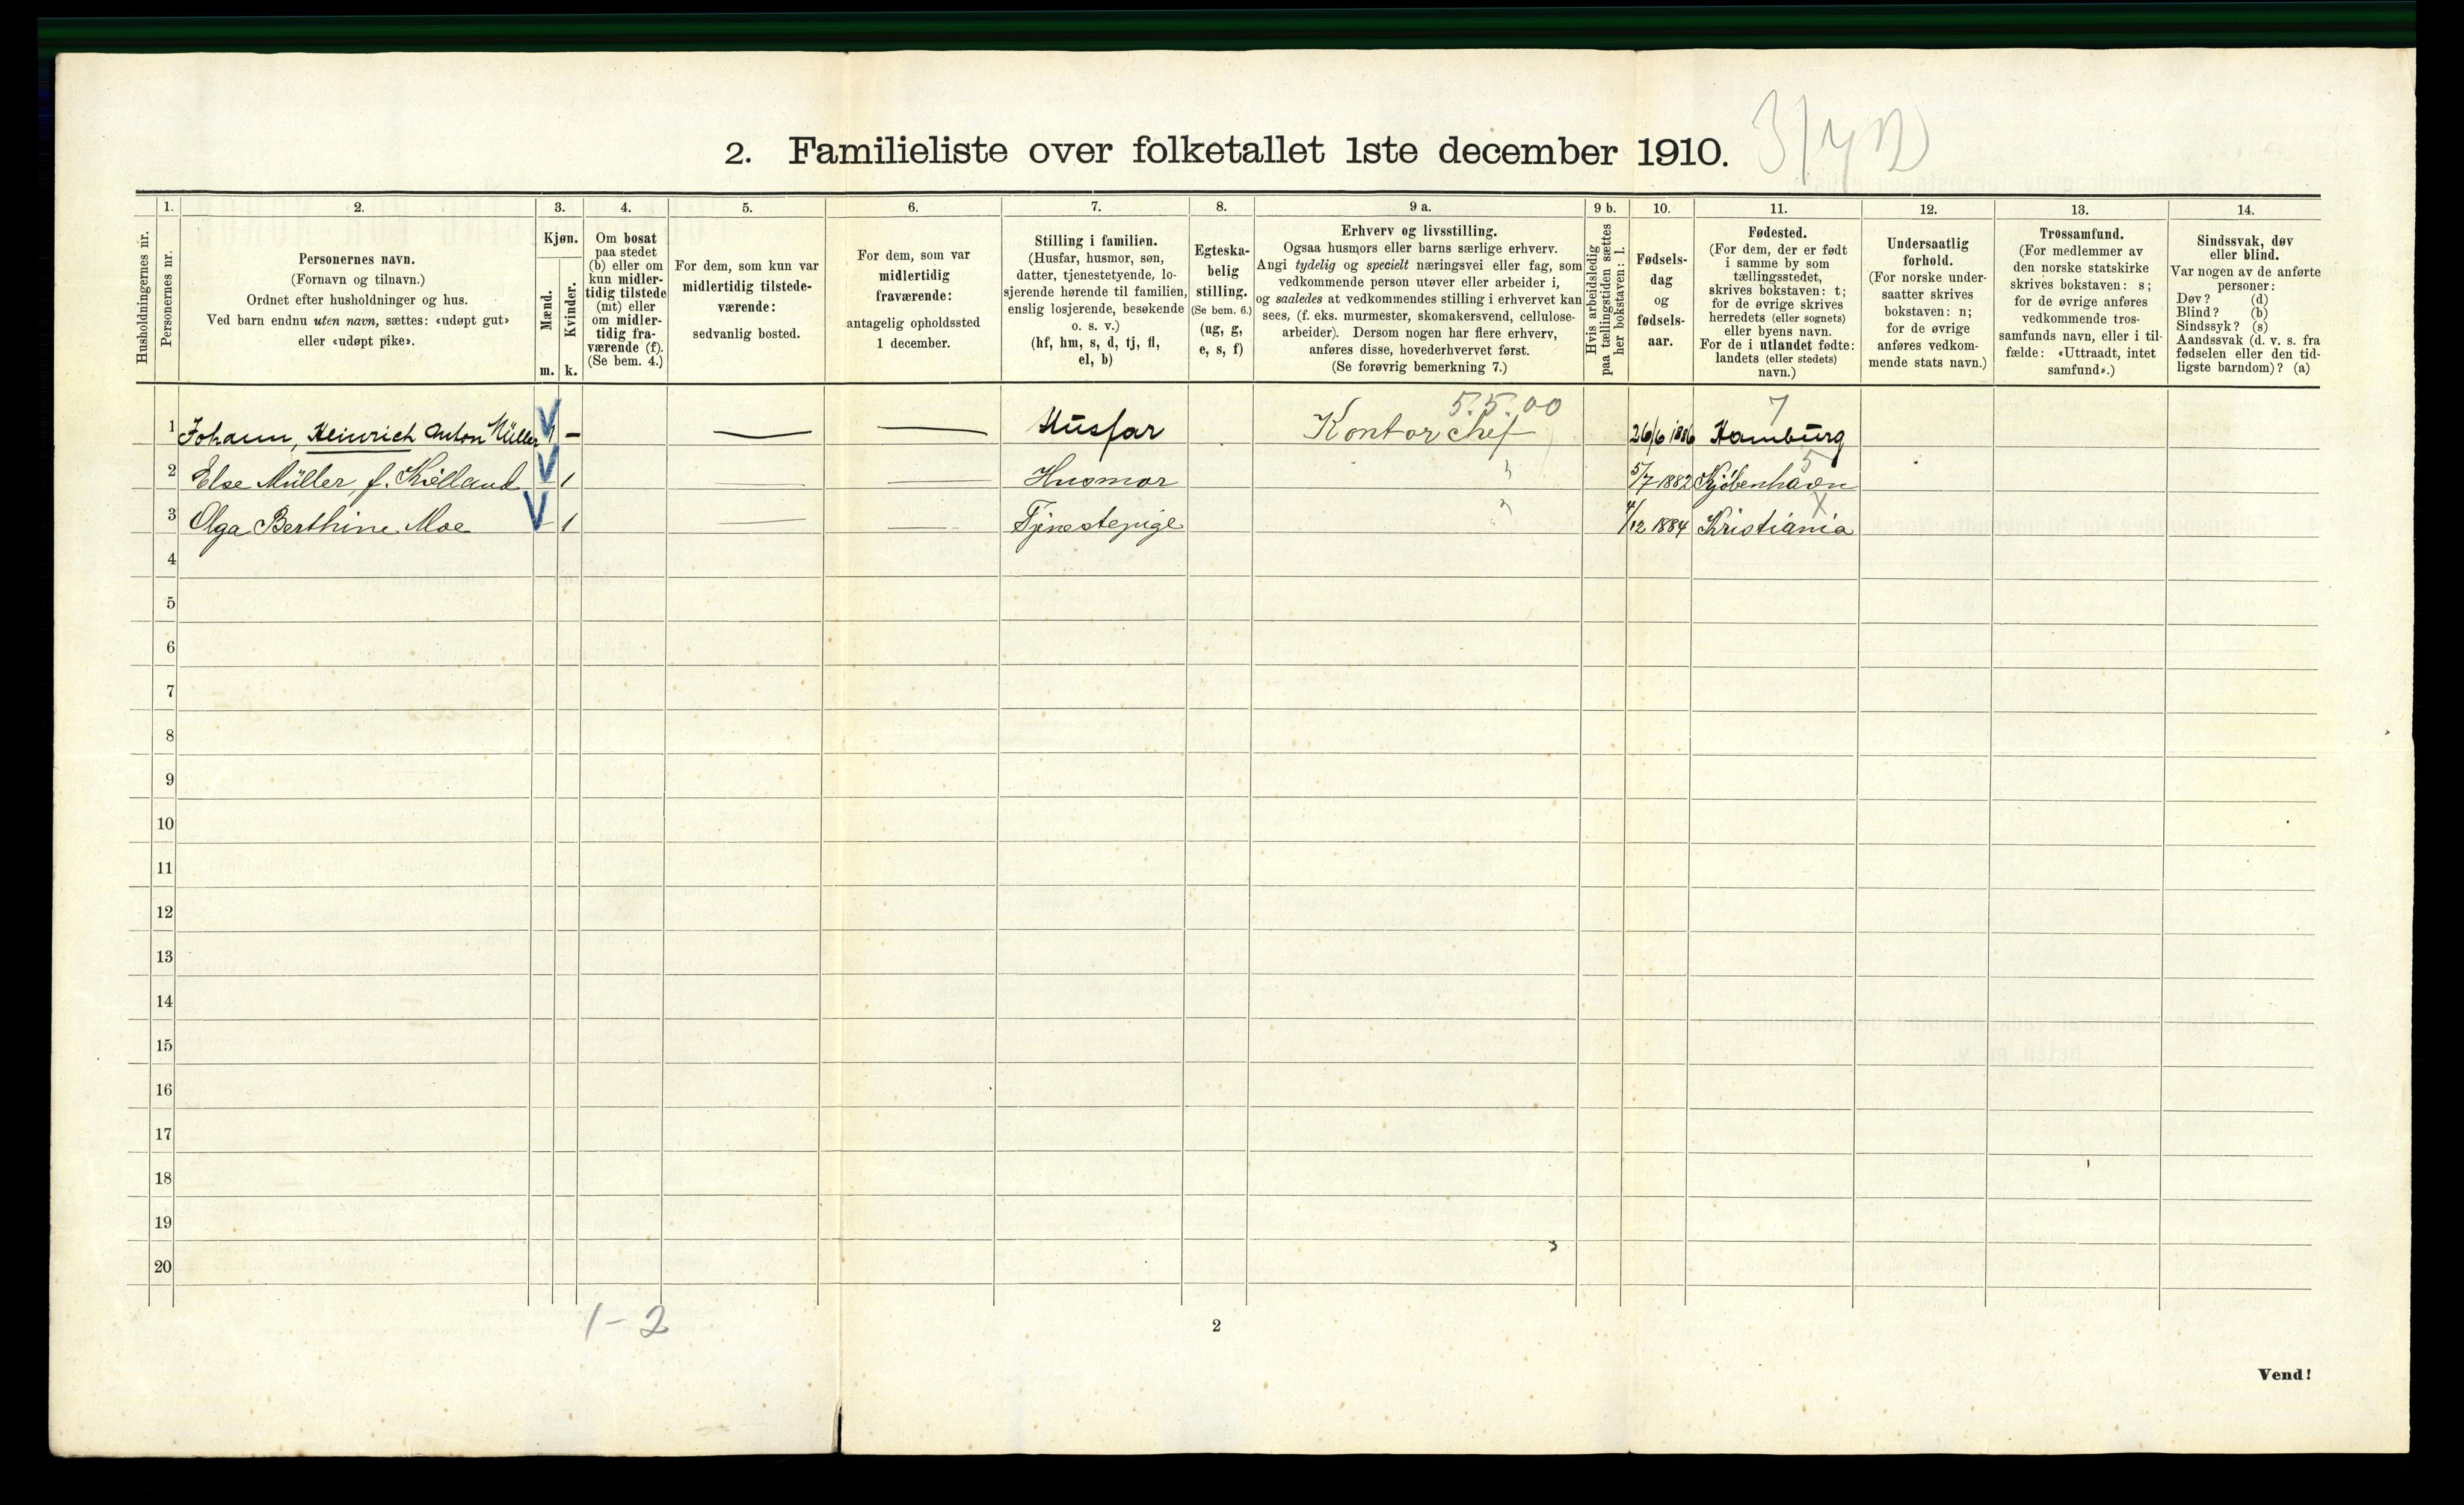 2. Familieliste over folketallet 1ste december 1910.
Husholdningernes nr.
1.
Personernes nr.
2.
Personernes navn.
(Fornavn og tilnavn.)
Ordnet efter husholdninger og hus.
Ved barn endnu uten navn, sættes: «udøpt gut»
eller «udøpt pike».
3.
Kjøn.
Mænd.
m.
Kvinder.
k.
4.
Om bosat
paa stedet
(b) eller om
kun midler-
tidig tilstede
(mt) eller
om midler-
tidig fra-
værende (f).
(Se bem. 4.)
5.
For dem, som kun var
midlertidig tilstede-
værende:
sedvanlig bosted.
6.
For dem, som var
midlertidig
fraværende:
antagelig opholdssted
1 december.
7.
Stilling i familien.
(Husfar, husmor, søn,
datter, tjenestetyende, lo-
sjerende hørende til familien,
enslig losjerende, besøkende
o. s. v.)
(hf, hm, s, d, tj, fl,
el, b)
8.
Egteska-
belig
stilling.
(Se bem. 6.)
(ug, g,
e, s, f)
9 a.
Erhverv og livsstilling.
Ogsaa husmors eller barns særlige erhverv.
Angi tydelig og specielt næringsvei eller fag, som
vedkommende person utøver eller arbeider i,
og saaledes at vedkommendes stilling i erhvervet kan
sees, (f. eks. murmester, skomakersvend, cellulose-
arbeider). Dersom nogen har flere erhverv,
anføres disse, hovederhvervet først.
(Se forøvrig bemerkning 7.)
9 b.
Hvis arbeidsledig
paa tællingstiden sættes
her bokstaven: l.
10.
Fødsels-
dag
og
fødsels-
aar.
11.
Fødested.
(For dem, der er født
i samme by som
tællingsstedet,
skrives bokstaven: t;
for de øvrige skrives
herredets (eller sognets)
eller byens navn.
For de i utlandet fødte:
landets (eller stedets)
navn.)
12.
Undersaatlig
forhold.
(For norske under-
saatter skrives
bokstaven: n;
for de øvrige
anføres vedkom-
mende stats navn.)
13.
Trossamfund.
(For medlemmer av
den norske statskirke
skrives bokstaven: s;
for de øvrige anføres
vedkommende tros-
samfunds navn, eller i til-
fælde: «Uttraadt, intet
samfund».)
14.
Sindssvak, døv
eller blind.
Var nogen av de anførte
personer:
Døv? (d)
Blind? (b)
Sindssyk? (s)
Aandssvak (d. v. s. fra
fødselen eller den tid-
ligste barndom)? (a)
5.5.00 7
1 Johann, Heinrich Anton Müller 1 – Husfar Kontorchef 26/6 1886 Hamburg
5
2 Else Müller, f. Kielland 1 Husmor 5/7 1882 Kjøbenhavn
X
3 Olga Berthine Moe 1 Tjenestepige 4/12 1884 Kristiania
4
5
6
7
8
9
10
11
12
13
14
15
16
17
18
19
20
1-2
2
Vend!